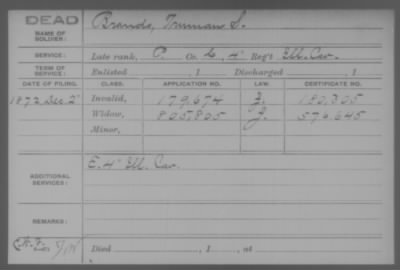 DEAD
NAME OF SOLDIER: Brands, Truman S.
SERVICE: Late rank, P. Co. L, 4" Reg't Ill. Cav.
TERM OF SERVICE: Enlisted , 1 Discharged , 1
DATE OF FILING. CLASS. APPLICATION NO. LAW. CERTIFICATE NO.
1872 Dec. 2" Invalid, 179,674 130,305
Widow, 805,805 576,645
Minor,
ADDITIONAL SERVICES: E. 4" Ill. Cav.
REMARKS:
Died , 1 , at